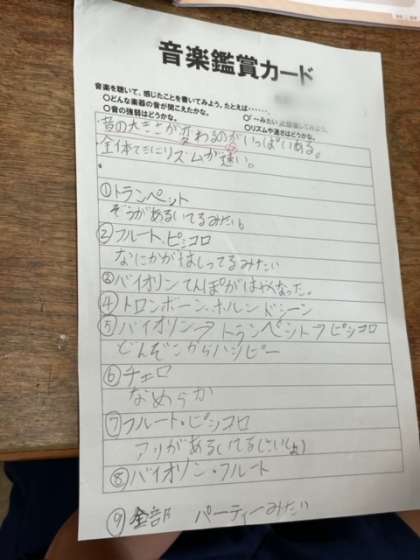 音楽鑑賞カード
音楽を聴いて、感じたことを書いてみよう。たとえば……、
○どんな楽器の音が聞こえたかな。
○「〜みたい」
○音の強弱はどうかな。
○リズムや速さはどうかな。
音の大きさが変わるのがいっぱいある。
全体てきにリズムが速い。
①トランペット
ぞうがあるいてるみたい。
②フルート、ピッコロ
なにかがはしってるみたい
③バイオリン てんぽがはやくなった。
④トロンボーン、ホルン ドシーン
⑤バイオリン→トランペット→ピッコロ
どんぞこからハッピー
⑥チェロ
なめらか
⑦フルート・ピッコロ
アリがあるいてる
⑧バイオリン・フルート
⑨全部 パーティーみたい